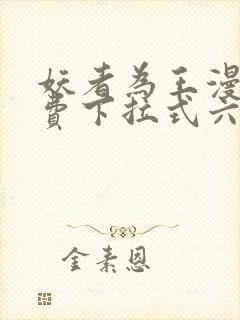 妖者為王漫
費下拉式六
金素恩